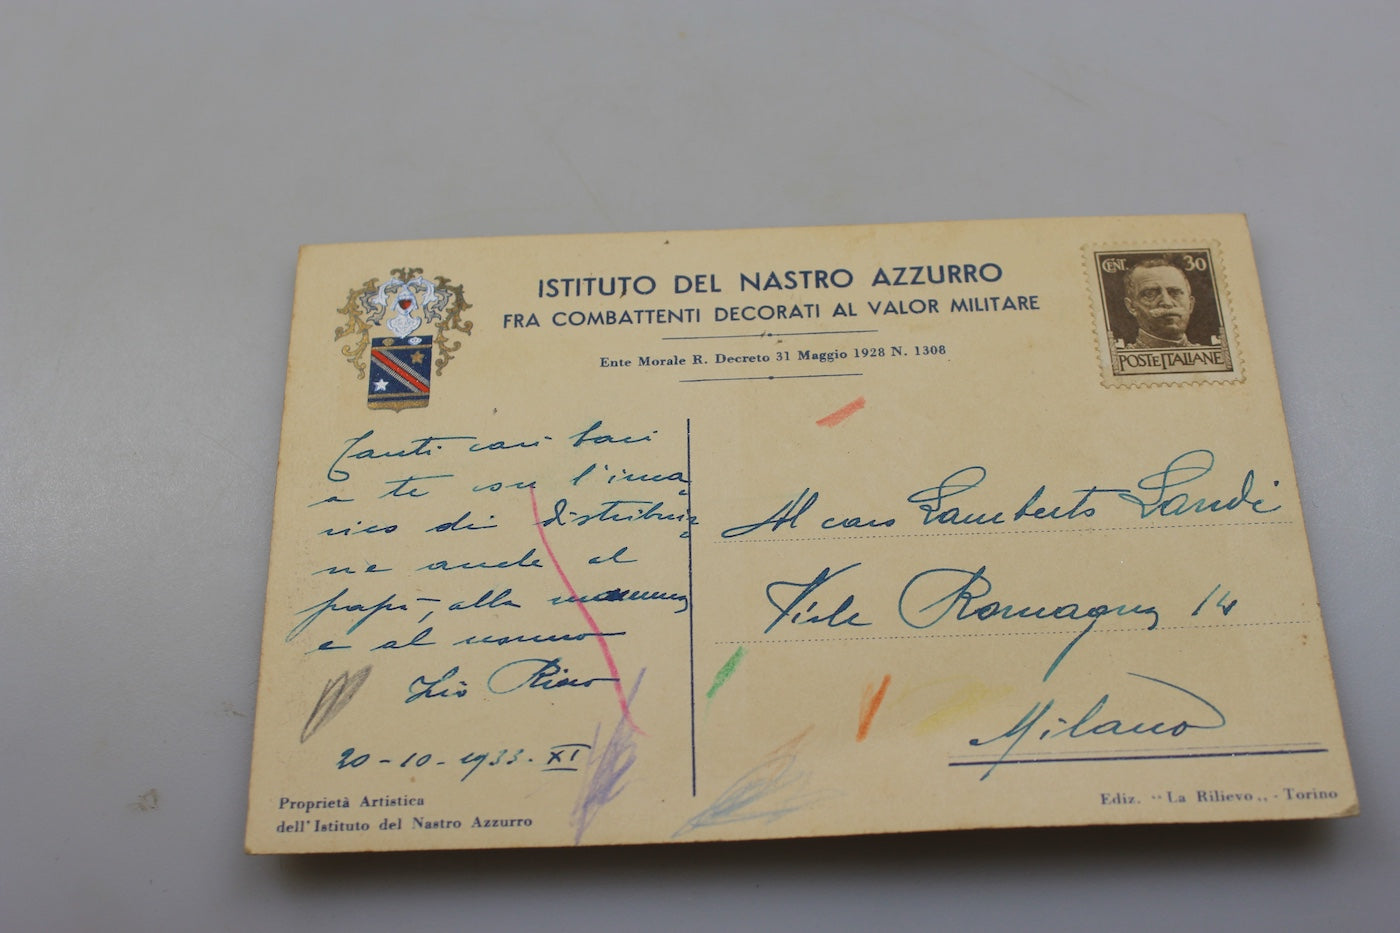 ISTITUTO DEL NASTRO AZZURRO
FRA COMBATTENTI DECORATI AL VALOR MILITARE
Ente Morale R. Decreto 31 Maggio 1928 N. 1308
CENT. 30
POSTE ITALIANE
Tanti cari baci
a te con l'inca
rico di distribuir
ne anche al
papà, alla mamma
e al nonno
Zio Piero
20-10-1933. XI
Proprietà Artistica
dell'Istituto del Nastro Azzurro
Al caro Lamberto Landi
Viale Romagna 14
Milano
Ediz. "La Rilievo„ - Torino